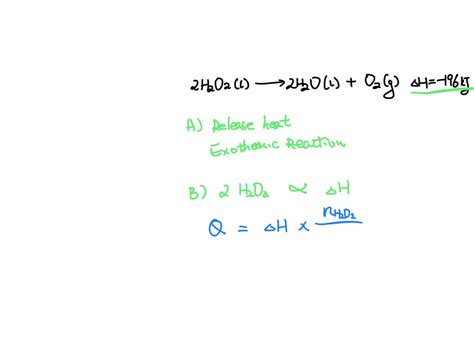 2H₂O₂(l) → 2H₂O(l) + O₂(g) ΔH=-196kJ
A) Release heat
Exothermic Reaction
B) 2 H₂O₂ ∝ ΔH
Q = ΔH × nH₂O₂